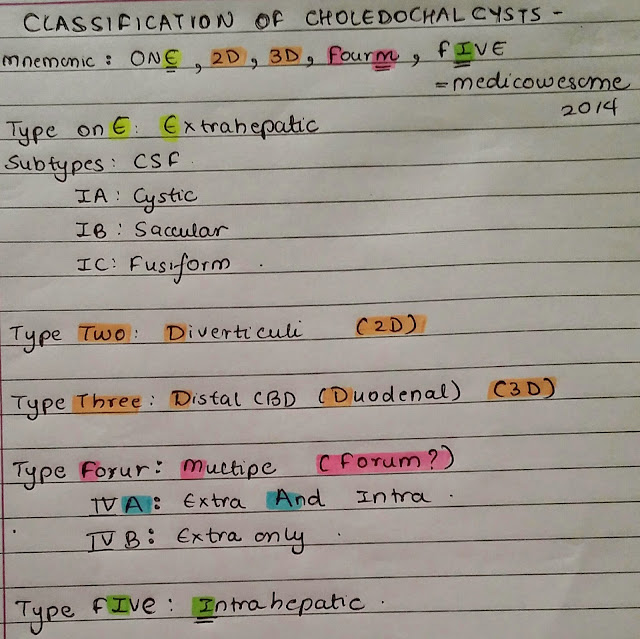 CLASSIFICATION OF CHOLEDOCHAL CYSTS -
mnemonic : ONE , 2D , 3D , Fourm , fIVE
= medicowesome
2014
Type onE : Extrahepatic
Subtypes : CSF .
IA : Cystic
IB : Saccular
IC : Fusiform .
Type Two : Diverticuli (2D)
Type Three : Distal CBD (Duodenal) (3D)
Type Forur : Muctipe (forum?)
IV A : Extra And Intra .
IV B : Extra only .
Type fIVe : Intrahepatic .